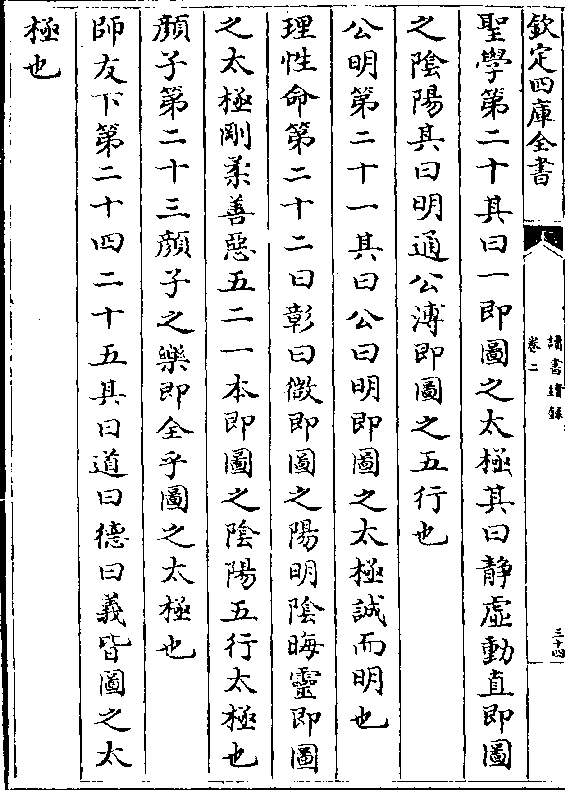 欽定四庫全書
讀書續錄
卷二
三十四
聖學第二十其曰一即圖之太極其曰靜虛動直即圖
之陰陽其曰明通公溥即圖之五行也
公明第二十一其曰公曰明即圖之太極誠而明也
理性命第二十二曰彰曰微即圖之陽明陰晦靈即圖
之太極剛柔善惡五二一本即圖之陰陽五行太極也
顏子第二十三顏子之樂即全乎圖之太極也
師友下第二十四二十五其曰道曰德曰義皆圖之太
極也